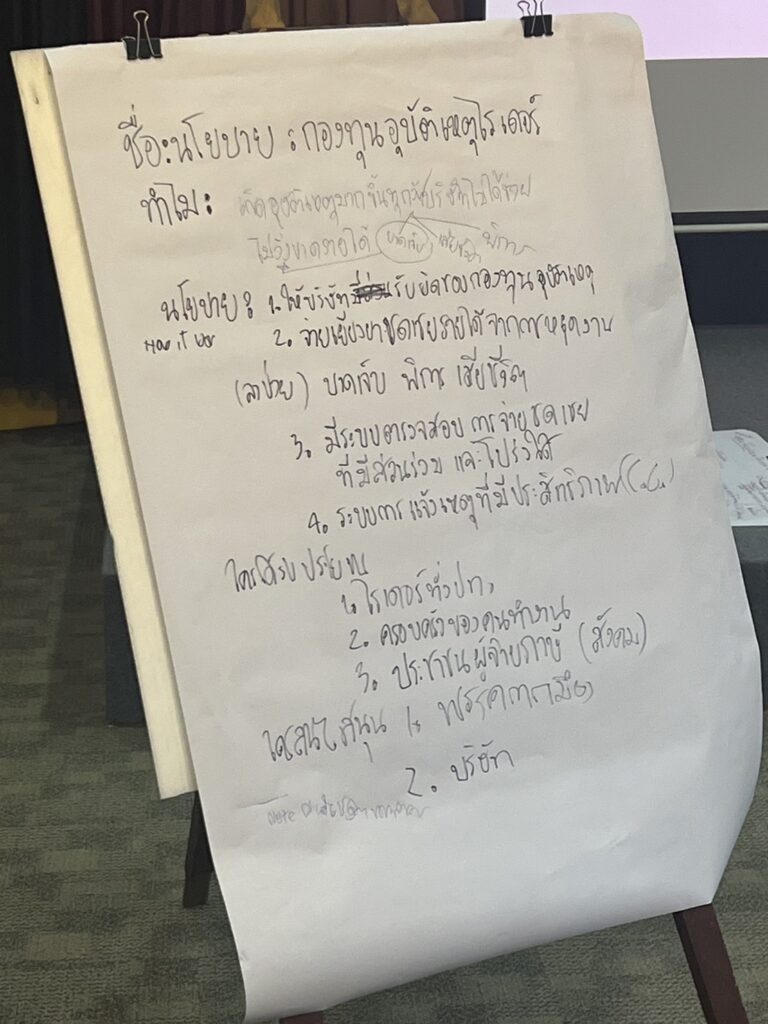 ชื่อ:นโยบาย : กองทุนอุบัติเหตุไรเดอร์
ทำไม: เกิดอุบัติเหตุมากขึ้นทุกวัน บริษัทไม่ได้ช่วย
ไม่วิ่งขาดรายได้ บาดเจ็บ เสียชีวิต พิการ
นโยบาย: 1. ให้บริษัทรับผิดชอบกองทุนอุบัติเหตุ
How it 2. จ่ายเยียวยาชดเชยรายได้จากการหยุดงาน
(ลาป่วย) บาดเจ็บ พิการ เสียชีวิต
3. มีระบบตรวจสอบ การจ่ายชดเชย
ที่มีส่วนร่วม และโปร่งใส
4. ระบบการแจ้งเหตุที่มีประสิทธิภาพ
ใครได้รับประโยชน์
1. ไรเดอร์ทั่วปท.
2. ครอบครัวของคนทำงาน
3. ประชาชนผู้จ่ายภาษี (สังคม)
ใครสนับสนุน 1. พรรคการเมือง
2. บริษัท